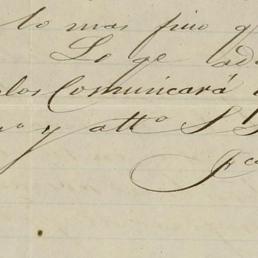 lo mas fino q
Lo ge ad
los Comunicará
y atto S
Fco